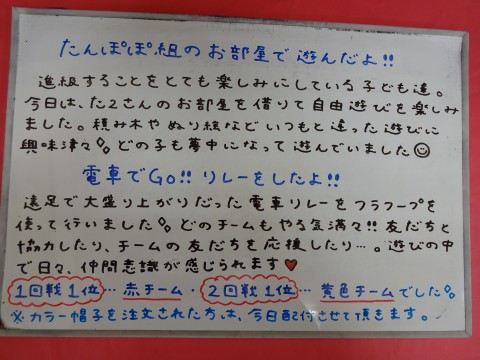 たんぽぽ組のお部屋で遊んだよ!!
進級することをとても楽しみにしている子ども達。
今日は、た2さんのお部屋を借りて自由遊びを楽しみ
ました。積み木やぬり絵などいつもと違った遊びに
興味津々 どの子も夢中になって遊んでいました☺
電車でGo!! リレーをしたよ!!
遠足で大盛り上がりだった電車リレーをフラフープを
使って行いました どのチームもやる気満々!! 友だちと
協力したり、チームの友だちを応援したり…。遊びの中
で日々、仲間意識が感じられます♥
1回戦1位… 赤チーム・2回戦1位… 黄色チームでした
※カラー帽子を注文された方は、今日配付させて頂きます。